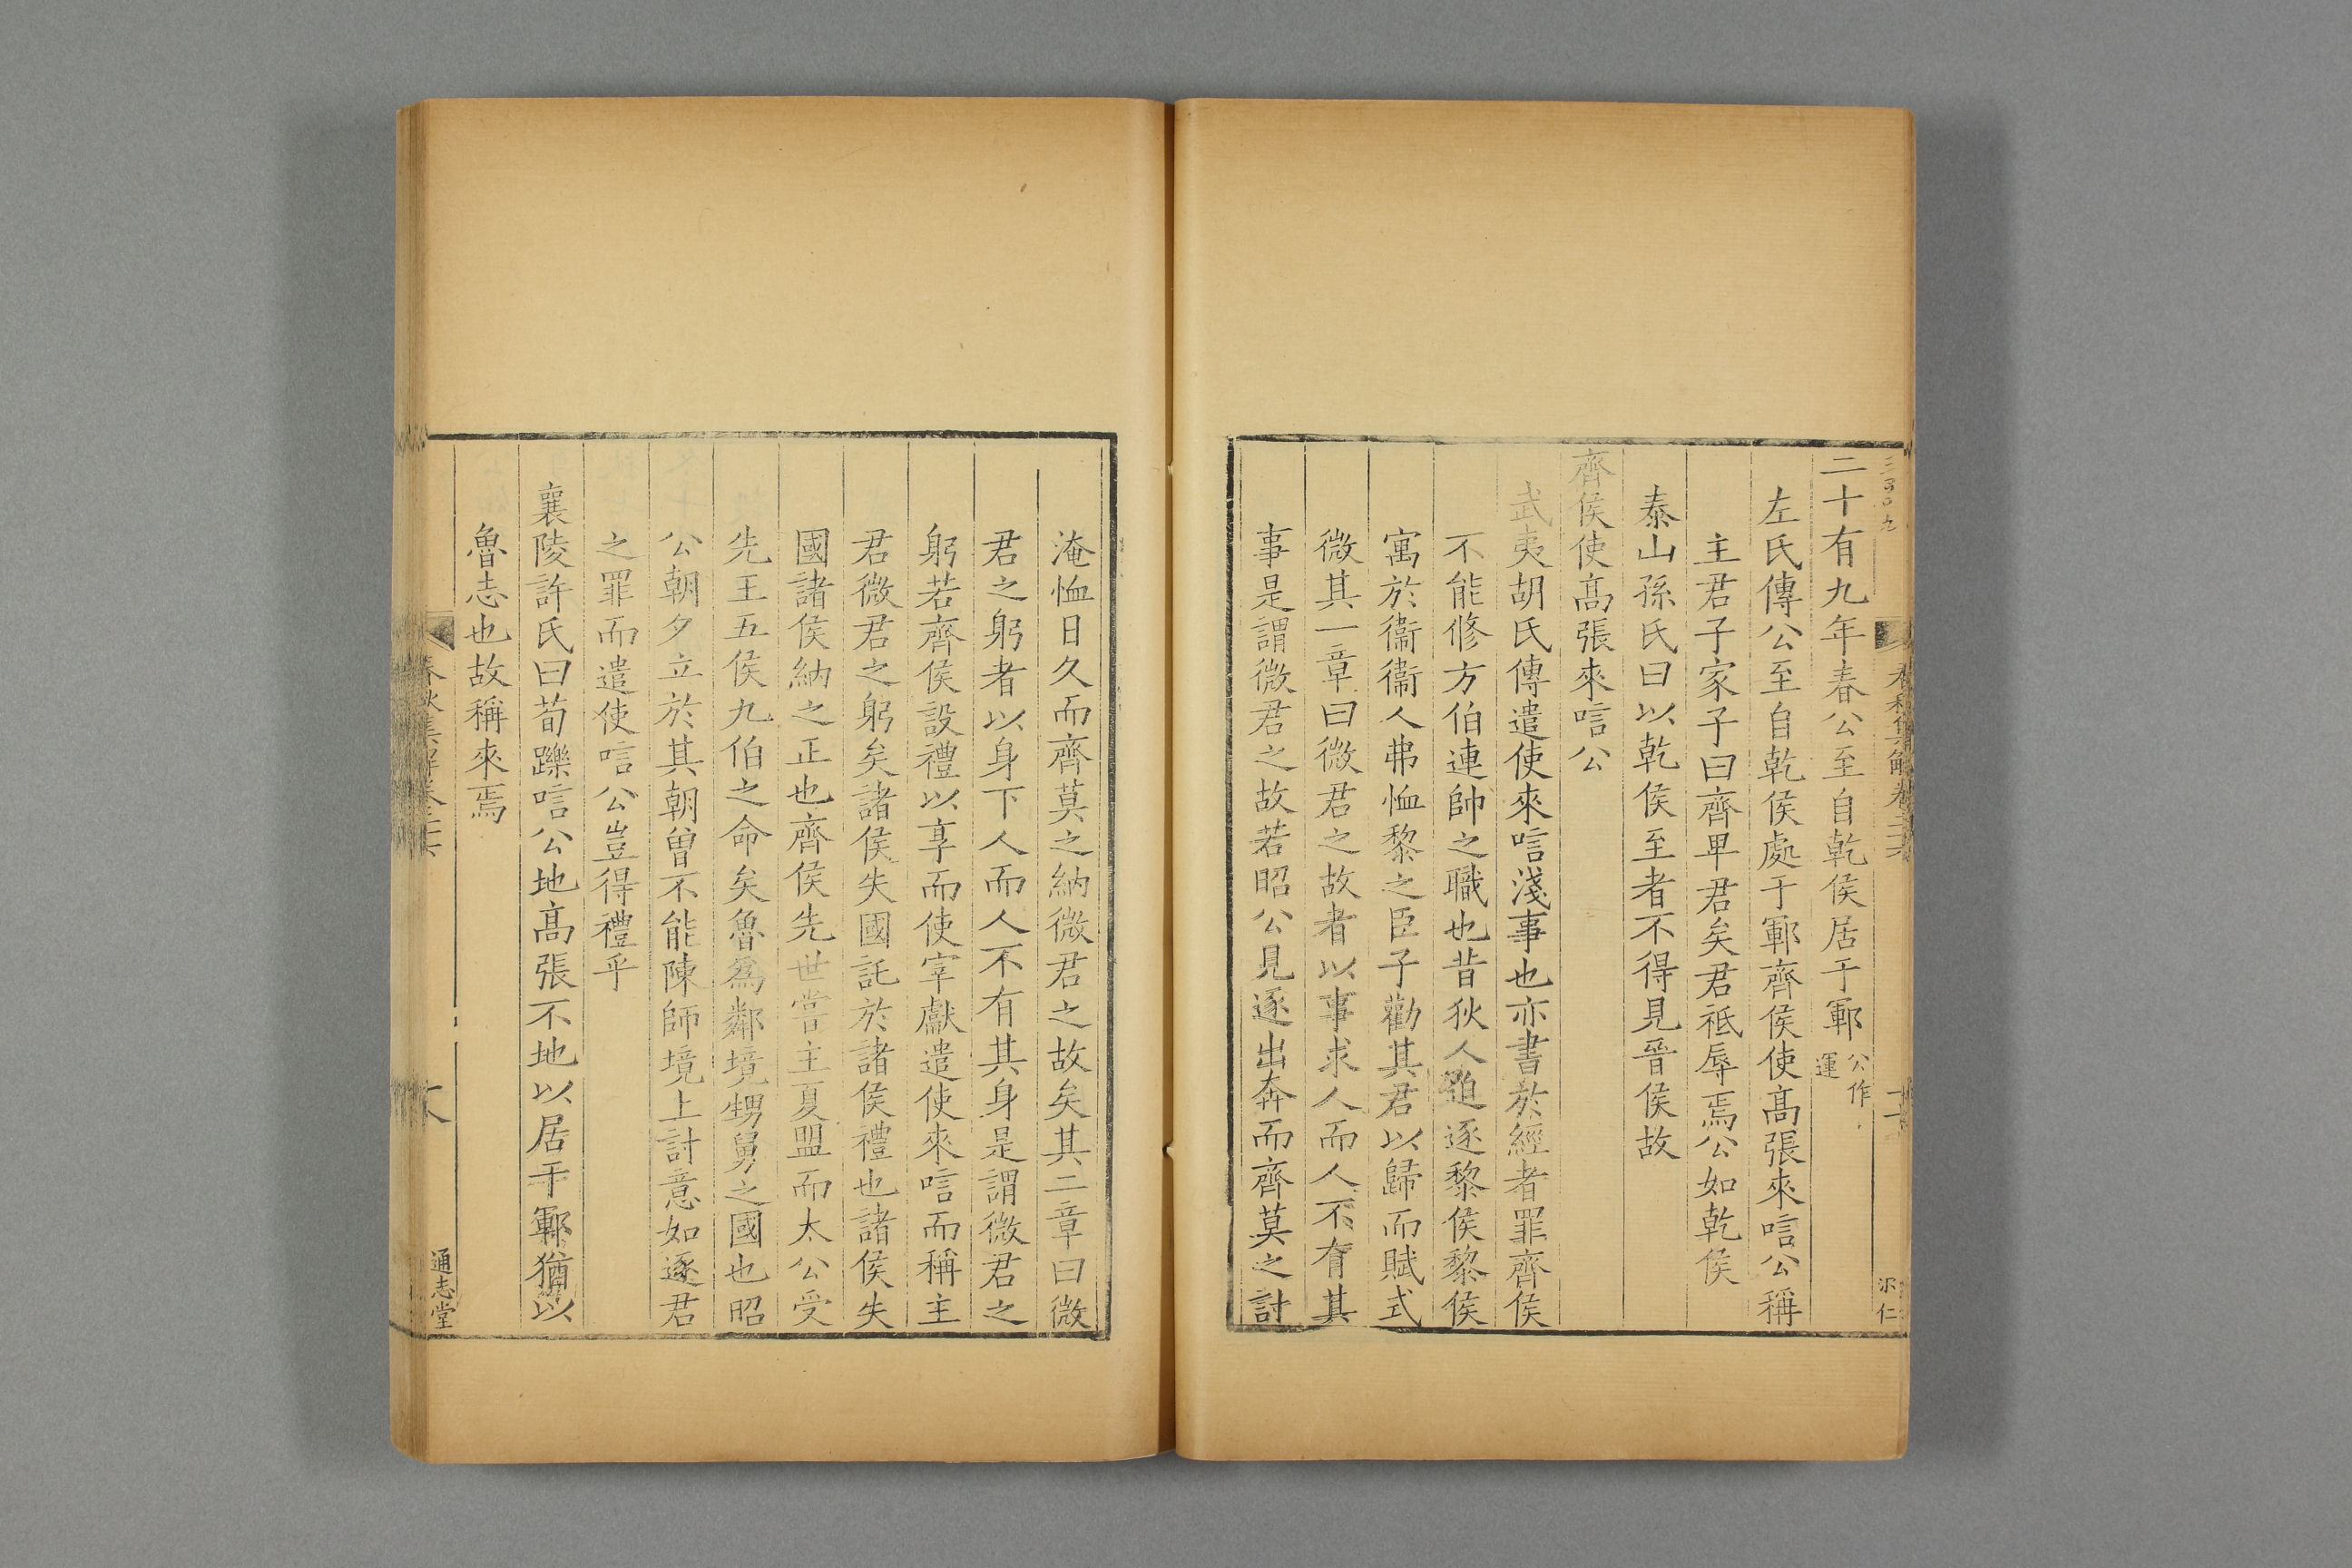 二十有九年春公至自乾侯居于鄆公作運
左氏傳公至自乾侯處于鄆齊侯使髙張來唁公稱
主君子家子曰齊卑君矣君祗辱焉公如乾侯
泰山孫氏曰以乾侯至者不得見晉侯故
齊侯使髙張來唁公
武夷胡氏傳遣使來唁淺事也亦書於經者罪齊侯
不能修方伯連帥之職也昔狄人迫逐黎侯黎侯
寓於衞衞人弗恤黎之臣子勸其君以歸而賦式
微其一章曰微君之故者以事求人而人不有其
事是謂微君之故若昭公見逐出奔而齊莫之討
淹恤日久而齊莫之納微君之故矣其二章曰微
君之躬者以身下人而人不有其身是謂微君之
躬若齊侯設禮以享而使宰獻遣使來唁而稱主
君微君之躬矣諸侯失國託於諸侯禮也諸侯失
國諸侯納之正也齊侯先世嘗主夏盟而太公受
先王五侯九伯之命矣魯爲鄰境甥舅之國也昭
公朝夕立於其朝曾不能陳師境上討意如逐君
之罪而遣使唁公豈得禮乎
襄陵許氏曰荀躒唁公地髙張不地以居于鄆猶以
魯志也故稱來焉
春秋集解卷二十六
通志堂